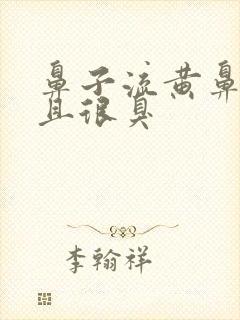 鼻子流黄鼻
且很臭
李翰祥